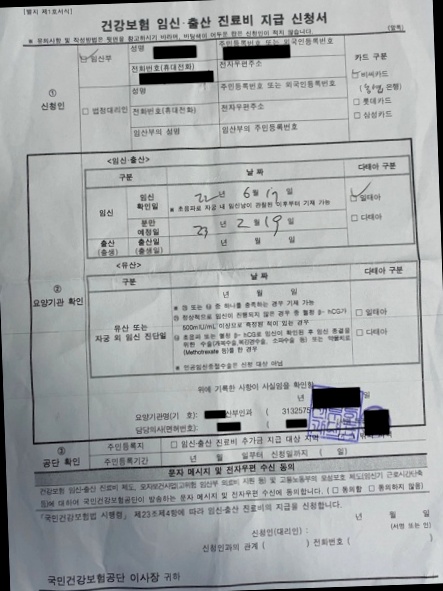 [별지 제1호서식]
건강보험 임신·출산 진료비 지급 신청서
※ 유의사항 및 작성방법은 뒷면을 참고하시기 바라며, 바탕색이 어두운 란은 신청인이 적지 않습니다. (앞쪽)
① 신청인
임산부
성명
주민등록번호 또는 외국인등록번호
전화번호(휴대전화)
전자우편주소
법정대리인
성명
주민등록번호 또는 외국인등록번호
전화번호(휴대전화)
전자우편주소
임산부의 성명
임산부의 주민등록번호
카드 구분
비씨카드
(농협 은행)
롯데카드
삼성카드
② 요양기관 확인
<임신·출산>
구분 날 짜 다태아 구분
임신
임신 확인일
22 년 6 월 17 일
※ 초음파로 자궁 내 임신낭이 관찰된 이후부터 기재 가능
분만 예정일
23 년 2 월 19 일
출산 (출생)
출산일 (출생일)
년 월 일
일태아
다태아
<유산>
구분 날 짜 다태아 구분
유산 또는 자궁 외 임신 진단일
년 월 일
※ ㉮ 또는 ㉯ 중 하나를 충족하는 경우 기재 가능
㉮ 정상적으로 임신이 진행되지 않은 경우 중 혈청 β- hCG가 500mIU/mL 이상으로 측정된 적이 있는 경우
㉯ 초음파 또는 혈청 β- hCG로 임신이 확인된 후 임신 종결을 위한 수술(개복수술, 복강경수술, 소파수술 등) 또는 약물치료(Methotrexate 등)를 한 경우
※ 인공임신중절수술은 신청 대상 아님
일태아
다태아
위에 기록한 사항이 사실임을 확인함
년 일
요양기관명(기 호): 산부인과 ( 3132575
담당의사(면허번호): (
③ 공단 확인
주민등록지
임신·출산 진료비 추가금 지급 대상 지역
주민등록기간
년 월 일부터 신청일까지 ( 일)
문자 메시지 및 전자우편 수신 동의
건강보험 임신·출산 진료비 제도, 모자보건사업(고위험 임산부 의료비 지원 등) 및 고용노동부의 모성보호 제도(임신기 근로시간단축 등)에 대하여 국민건강보험공단이 발송하는 문자 메시지 및 전자우편 수신에 동의합니다. ( 동의함 동의하지 않음)
「국민건강보험법 시행령」 제23조제4항에 따라 임신·출산 진료비의 지급을 신청합니다.
년 월 일
신청인(대리인) : (서명 또는 인)
신청인과의 관계 ( ) 전화번호 ( )
국민건강보험공단 이사장 귀하